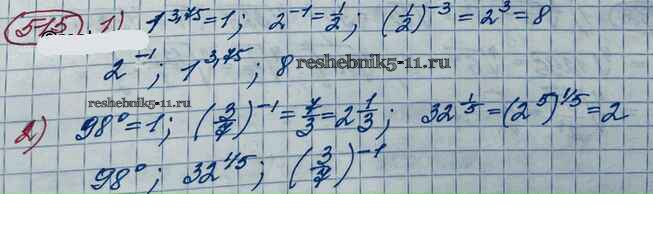 515 1) 1^3,75 = 1; 2^-1 = 1/2; (1/2)^-3 = 2^3 = 8
2^-1; 1^3,75; 8
reshebnik5-11.ru
reshebnik5-11.ru
2) 98^0 = 1; (3/7)^-1 = 7/3 = 2 1/3; 32^1/5 = (2^5)^1/5 = 2
98^0; 32^1/5; (3/7)^-1